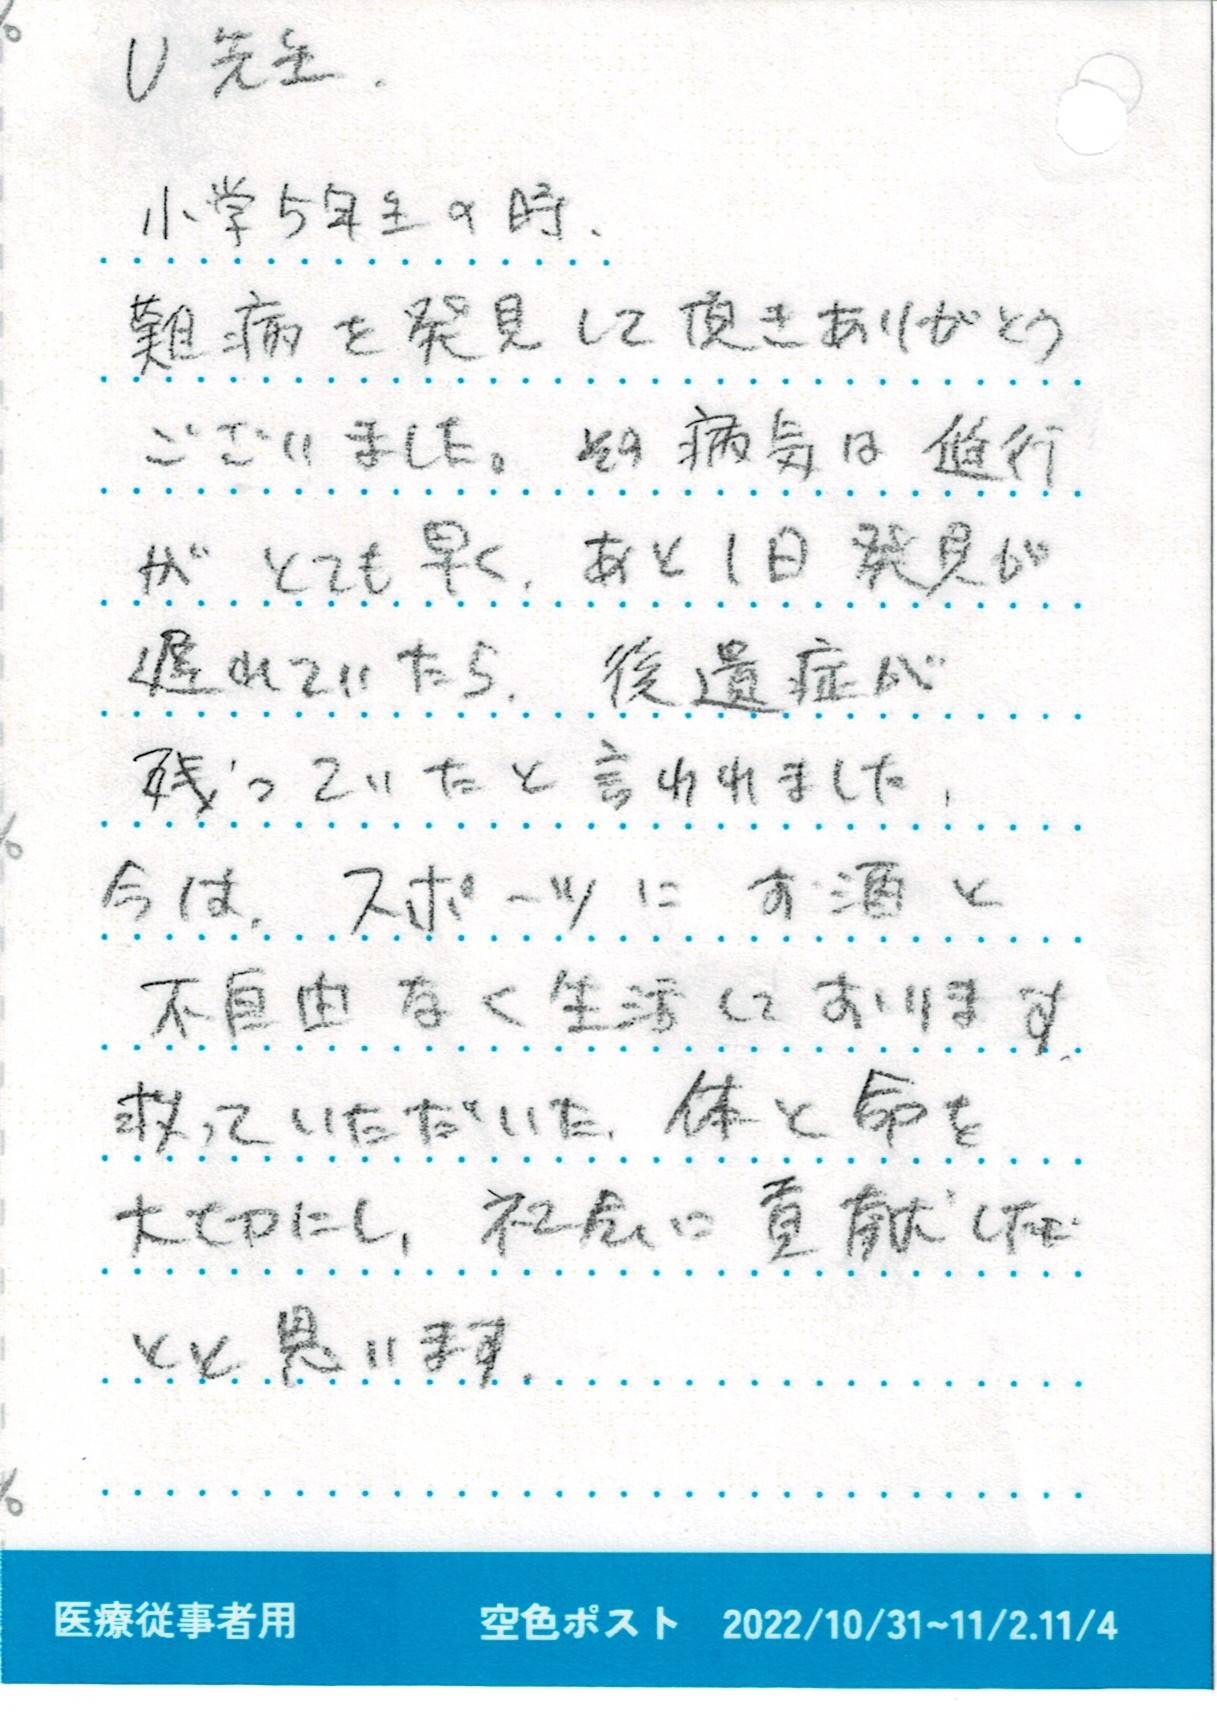 U 先生.
小学5年生の時、
難病を発見して頂きありがとう
ございました。その病気は進行
がとても早く、あと1日発見が
遅れていたら、後遺症が
残っていたと言われました、
今は、スポーツにお酒と
不自由なく生活しております、
救っていただいた、体と命を
大切にし、社会に貢献した
いと思います、
医療従事者用 空色ポスト 2022/10/31~11/2.11/4